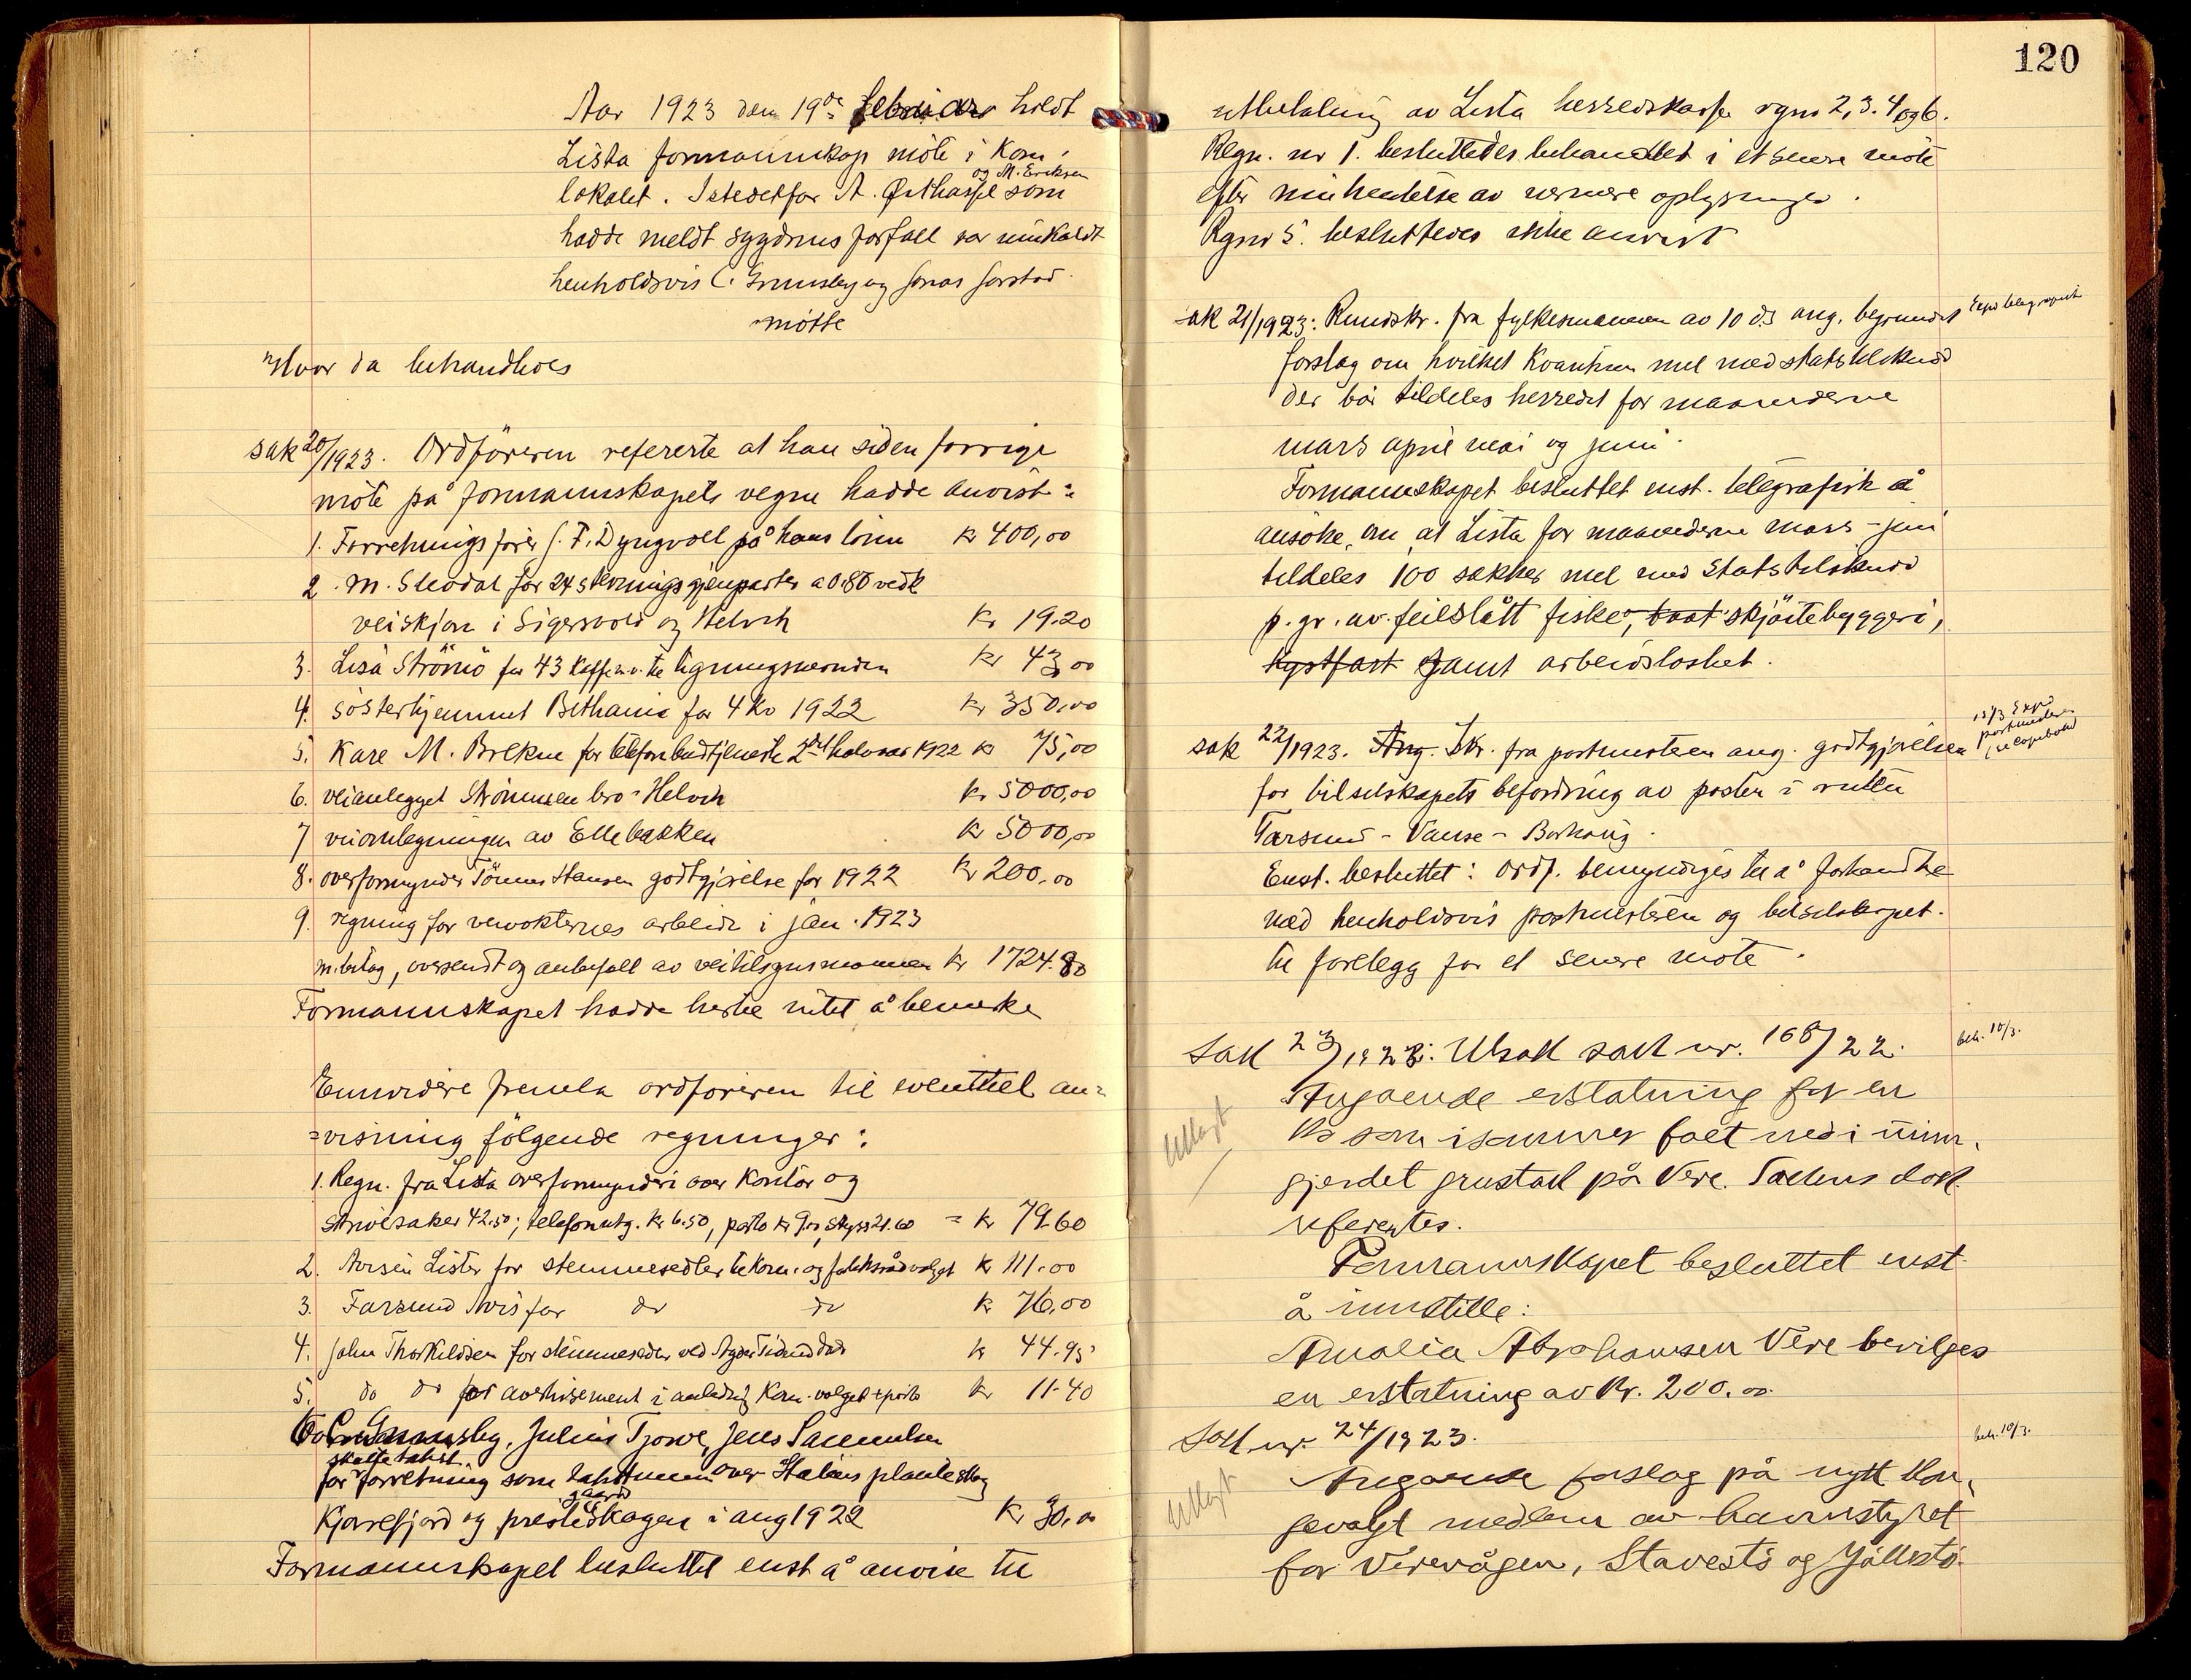 Aar 1923 den 19de februar holdt
Lista formannskap möte i Kom.
og M. Eriksen
lokalet. Istedetfor A. Østhassel som
hadde meldt sygdoms forfall var innkaldt
henholdsvis C. Grimsby og Jonas Jorstad
mötte
Hvor da behandledes
sak 20/1923. Ordföreren refererte at han siden forrige
möte på formannskapets vegne hadde anvist:
1. Forretningsförer J. F. Dyngvoll på hans lönn kr 400,00
2. M. Slevdal for 24 skönnings gjenparter a 0.80 vedk
veiskjön i Sigersvold og Helvik kr 19.20
3. Lisa Strömö for 43 kaffe m.v. til ligningsnevnden kr 43,00
4. sösterhjemmet Bethania for 4 kv 1922 kr 350,00
5. Kare M. Brekne for telefonbudtjeneste 2det halvaar 1922 kr 75,00
6. veianlegget Strömmen bro - Helvik kr 5000,00
7 veiomlegningen av Ellebakken kr 5000,00
8. overformynder Tönnes Hansen godtgjörelse for 1922 kr 200,00
9. regning for veivokternes arbeide i jan. 1923
m. bilag, oversendt og anbefalt av veitilsynsmannen kr 1724.80
Formannskapet hadde hertil intet å bemerke
Ennvidere fremla ordföreren til eventuel an=
=visning fölgende regninger:
1. Regn. fra Lista overformynderi over kontor og
skrivesaker 42.50; telefonutg. kr 6.50, porto kr 9.00, skyss 21.60 = kr 79.60
2. Avisen Lister for stemmesedler til kom. og folkerådvalget kr 111.00
3. Farsund Avis for do do kr 76.00
4. John Thorkildsen for stemmesedler ved Agder Tidend do do kr 44.95
5. do do for avertissement i anledning kom. valget + porto kr 11.40
6 C. Grimsby, Julius Tjorve, Jens Samuelsen
skatte takst
for forretning som takstmenn over Statens planteskog
gaard
Kjörrefjord og presteskogen i aug 1922 kr 30,00
Formannskapet besluttet enst å anvise til
120
utbetaling av Lista herredskasse rgnr 2, 3. 4 og 6.
Regn. nr 1. besluttedes behandlet i et senere möte
efter innhentelse av nærmere oplysninger.
Rgnr 5. besluttedes ikke anvist
sak 21/1923: Rundskr. fra fylkesmannen av 10 ds ang. begrundet
Exp telegrafisk
forslag om hvilket kvantum mel med statstilskudd
der bör tildeles herredet for maanederne
mars april mai og juni.
Formannskapet besluttet enst. telegrafisk å
ansöke om at Lista for maanederne mars - juni
tildeles 100 sekker mel med Statstilskudd
p. gr. av feilslått fiske, baat skjöitebyggeri,
kystfart samt arbeidslöshet.
sak 22/1923. Ang. Skr. fra postmesteren ang. godtgjörelsen
15/3 Exp
postmesteren
se kopibok
for bilselskapets befordring av posten i ruten
Farsund - Vanse - Borhaug.
Enst. besluttet: ordf. bemyndiges til å forhandle
med henholdsvis postmesteren og bilselskapet
til forelegg for et senere möte.
Sak 23/1923: Utsatt sak nr. 168/22.
beh. 10/3.
Utlagt
Angaaende erstatning for en
ko som isommer falt ned i uinn,
gjerdet grustak på Vere. Sakens dok
referertes.
Formannskapet besluttet enst.
å innstille:
Amalia Abrahamsen Vere bevilges
en erstatning av kr. 200.00.
Sak nr. 24/1923.
beh. 10/3.
Utlagt
Angaaende forslag på nytt kon,
gevalgt medlem av havnestyret
for Verevågen, Stavestö og Jöllestö.